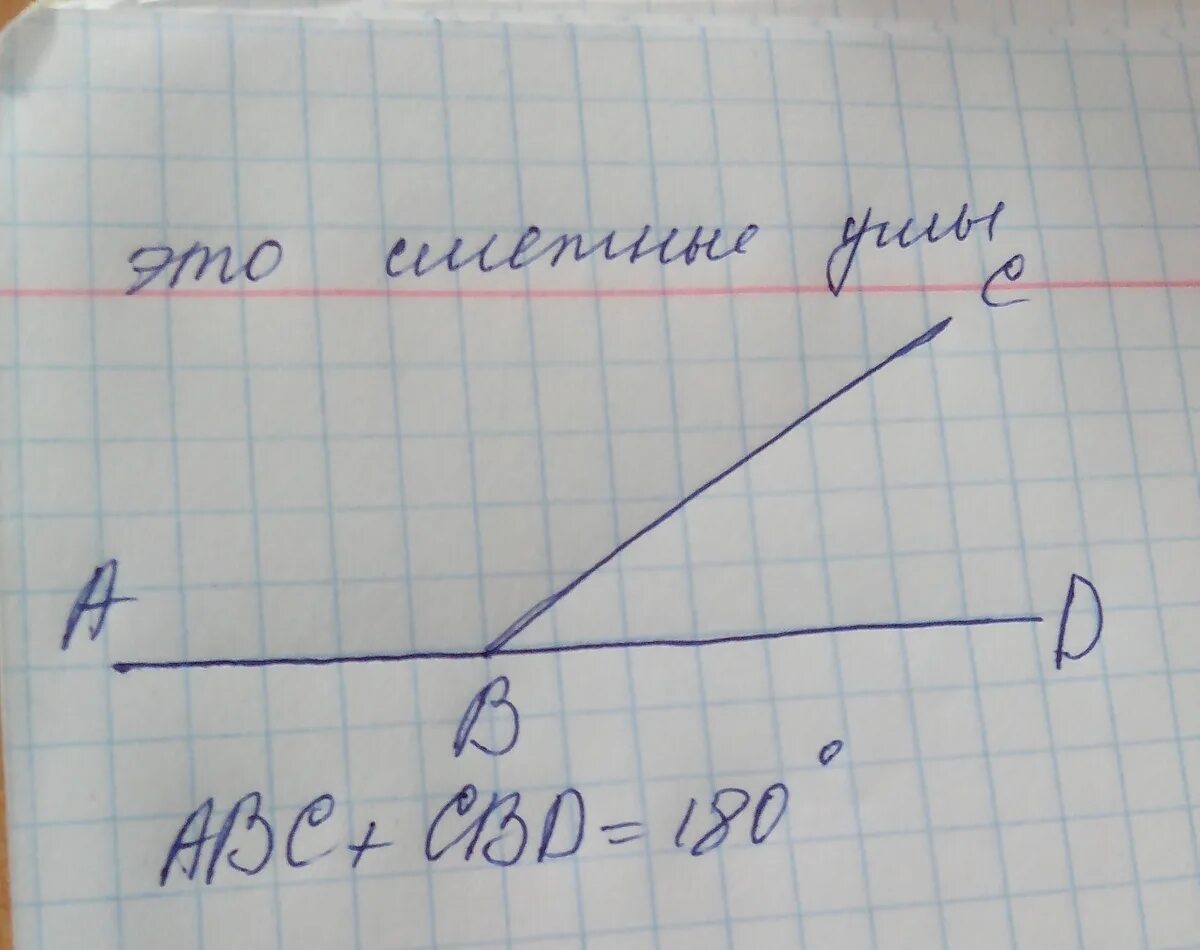 это смежные углы
C
A
D
B
ABC + CBD = 180°